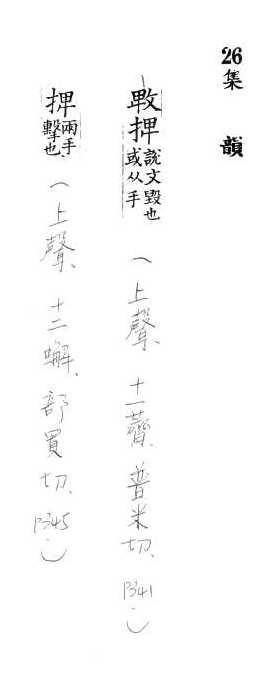 26 集 韻
𢾱捭 說文毀也或从手（上聲、十一薺、普米切、P341.）
捭 兩手擊也（上聲、十二蟹、部買切、P345.）